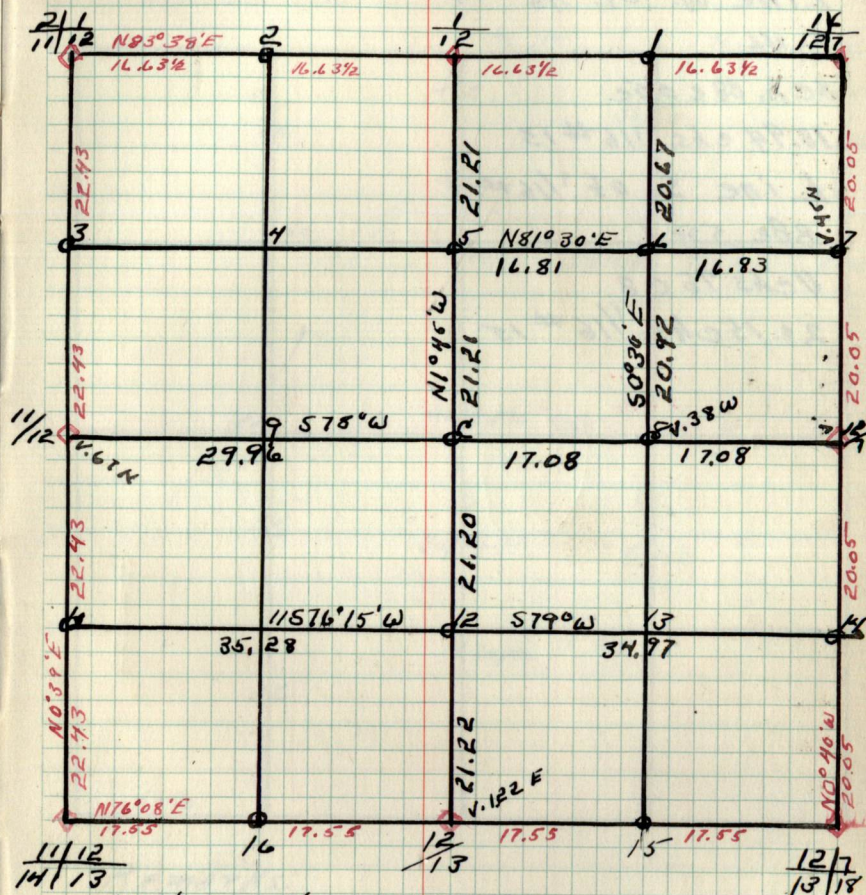 2 | 1
11 | 12
2
1
12
1
1 | 6
12 | 7
N83°38'E
16.63½
16.63½
16.63½
16.63½
22.43
21.21
20.67
20.05
V.45N
3
4
5
N81°30'E
6
7
16.81
16.83
22.43
N1°45'W
21.21
S0°30'E
20.92
20.05
11/12
9
S78°W
8
V.38W
12
7
V.67N
29.96
17.08
17.08
22.43
21.20
20.05
11
S76°15'W
12
S79°W
13
14
35.28
34.97
N0°39'E
22.43
21.22
V.122E
N0°40'W
20.05
N76°08'E
17.55
17.55
17.55
17.55
11 | 12
14 | 13
16
12
13
15
12 | 7
13 | 18